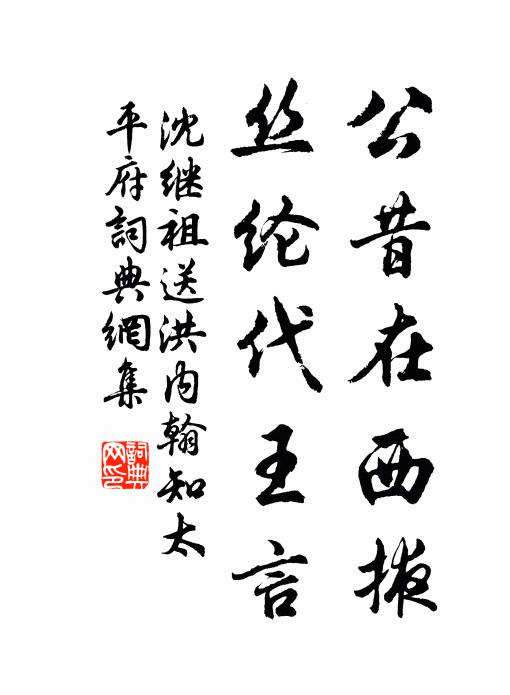 公昔在西掖
丝纶代王言
沈继祖送洪内翰知太
平府詞典網集
詞典
网印